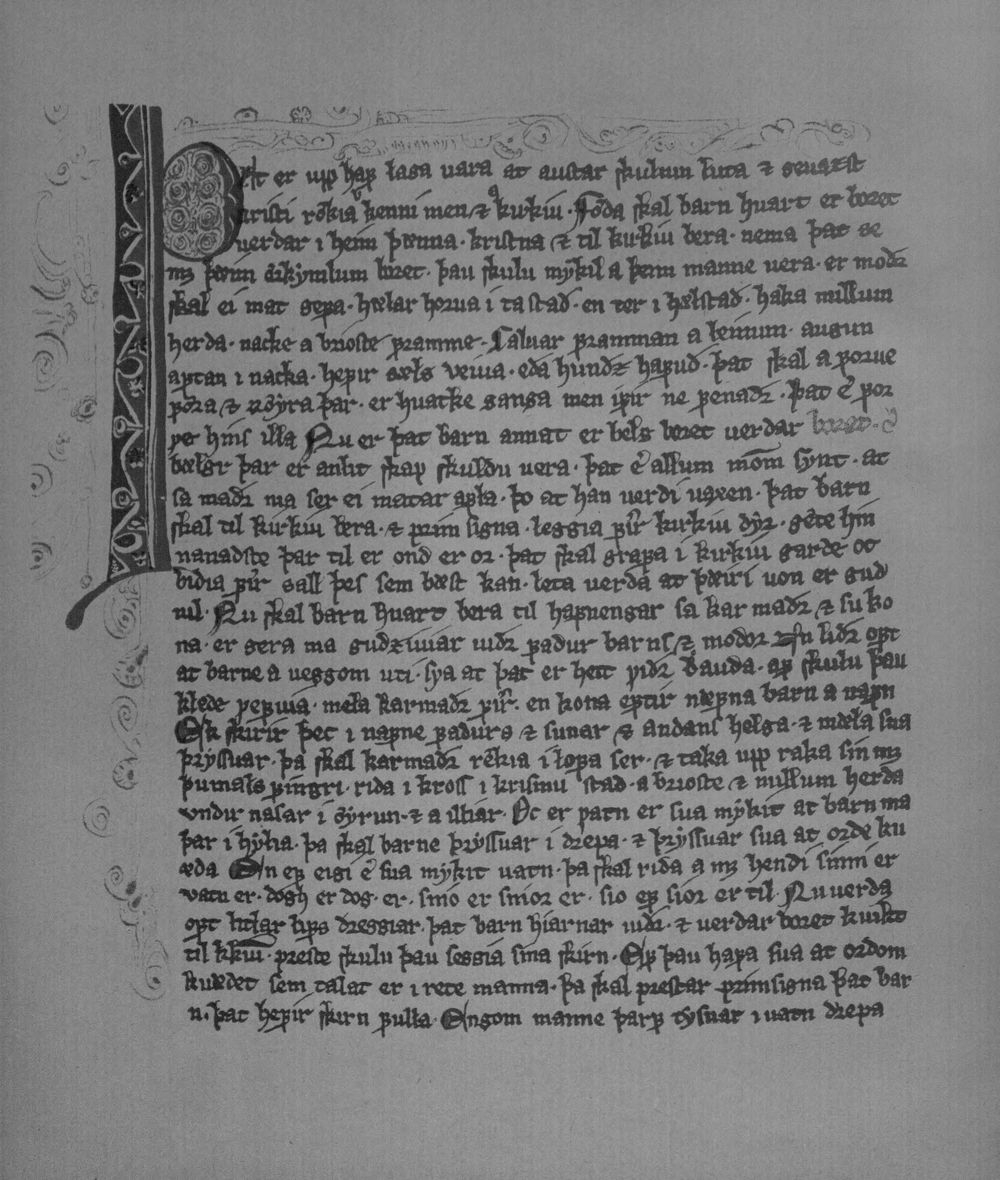 Þat er upp haf laga vara at austar skulum luta ⁊ gevazst
kristi rǿkia kenni men ⁊ kirkiu. Fǿda skal barn huart er boret
verdar i heim þænna. kristna ⁊ til kirkiu bera. nema þat se
mꝫ þæim ørkymlum boret. þau skulu mykil a þem manne vera. er modꝛ
skal ei mat gefa. hælar horva i ta stad. en ter i hælstad. haka millum
herda. nacke a brioste framme. Caluar framman a leinum. augun
aftan i nacka. hefir sæls veiua. eda hundꝛ hafud. þat skal a forue
fǿra ⁊ røyra þar. er huatke ganga men ifir ne fenadꝛ. þat er for
ve hins illa Nu er þat barn annat er bels boret verdar
bælgr þar er anlit skap skuldu vera. þat er allum mom synt. at
sa madꝛ ma ser ei matar afla. þo at han verdi vaxen. þat barn
skal til kirkiu bera. ⁊ prim signa. leggia fir kirkiu dyꝛ. gete hin
nanadste þar til er ond er or. þat skal grafa i kirkiu garde oc
bidia fir sall þes sem bæst kan. leta verda at þæiri von er gud
vil. Nu skal barn huart bera til hafnengar sa kar madꝛ ⁊ su ko
na. er gera ma gudziuiar vidꝛ fadur barns ⁊ modor En lidꝛ oft
at barne a veggom uti. sya at þat er hett vidꝛ dauda. af skulu þau
klede vefiuia. mela karmadꝛ fir. en kona eftir næfna barn a nafn
Ek skirir þec i nafne fadurs ⁊ sunar ⁊ andans helga. ⁊ mæla sua
þryssuar. þa skal karmadꝛ rekia i lofa ser. ⁊ taka upp raka sin mꝫ
þumals fingri. rida i kross i krismu stad. a brioste ⁊ millum herda
vndir nasar i øyrun. ⁊ a iliar. Oc er vatn er sua mykit at barn ma
þar i hylia. þa skal barne þryssuar i drepa. ⁊ þryssuar sua at orde ku
æda En ef eigi er sua mykit vatn. þa skal rida a mꝫ hendi sinni er
vatn er. dogh er dog. er. snio er snior er. sio ef sior er til. Nu verda
oft litlar lifs dreggiar. þat barn hiarnar vidꝛ. ⁊ verdar boret kuikt
til kkiu. preste skulu þau seggia sina skirn. Ef þau hafa sua at ordom
kuædet sem talat er i rete manna. þa skal prestar primsigna þat bar
n. þat hefir skirn fulla. Engom manne þarf tysuar i vatn drepa